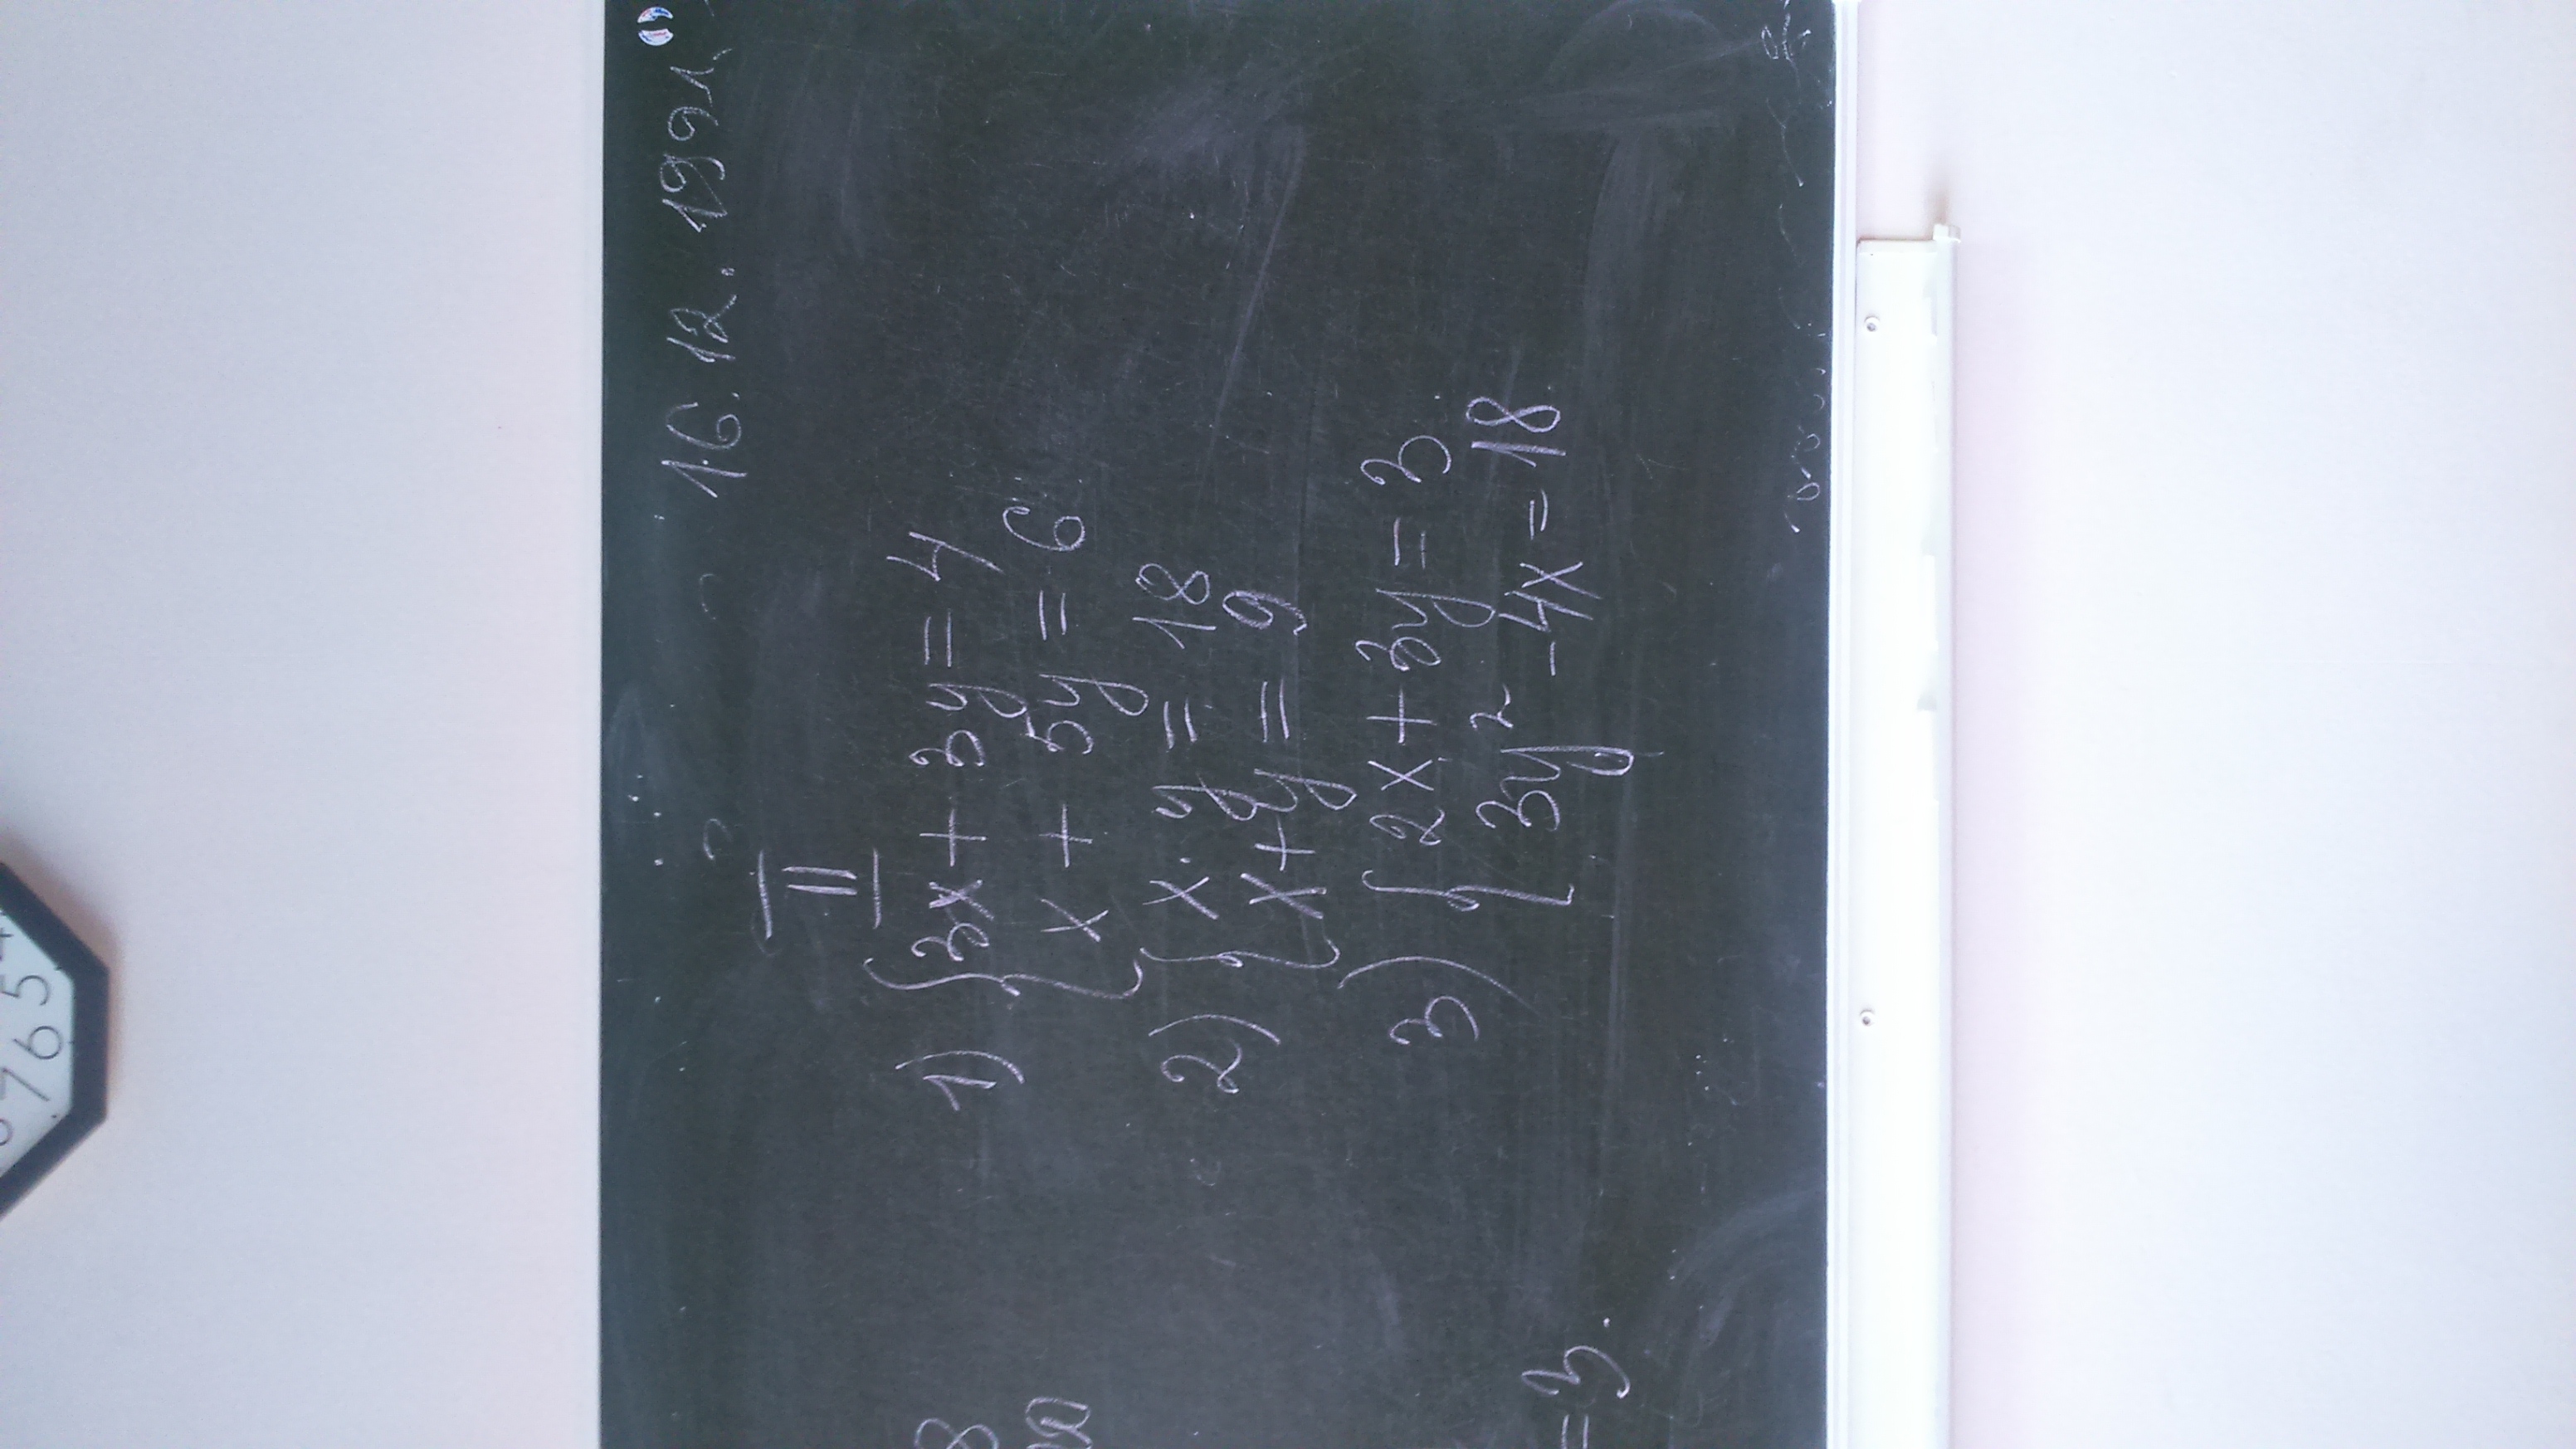 16.12.199
II
1) { 3x + 3y = 4
x + 5y = 6
2) { x · y = 18
x + y = 9
3) { 2x + 3y = 3
3y² - 4x = 18
= 3.
7 6 5